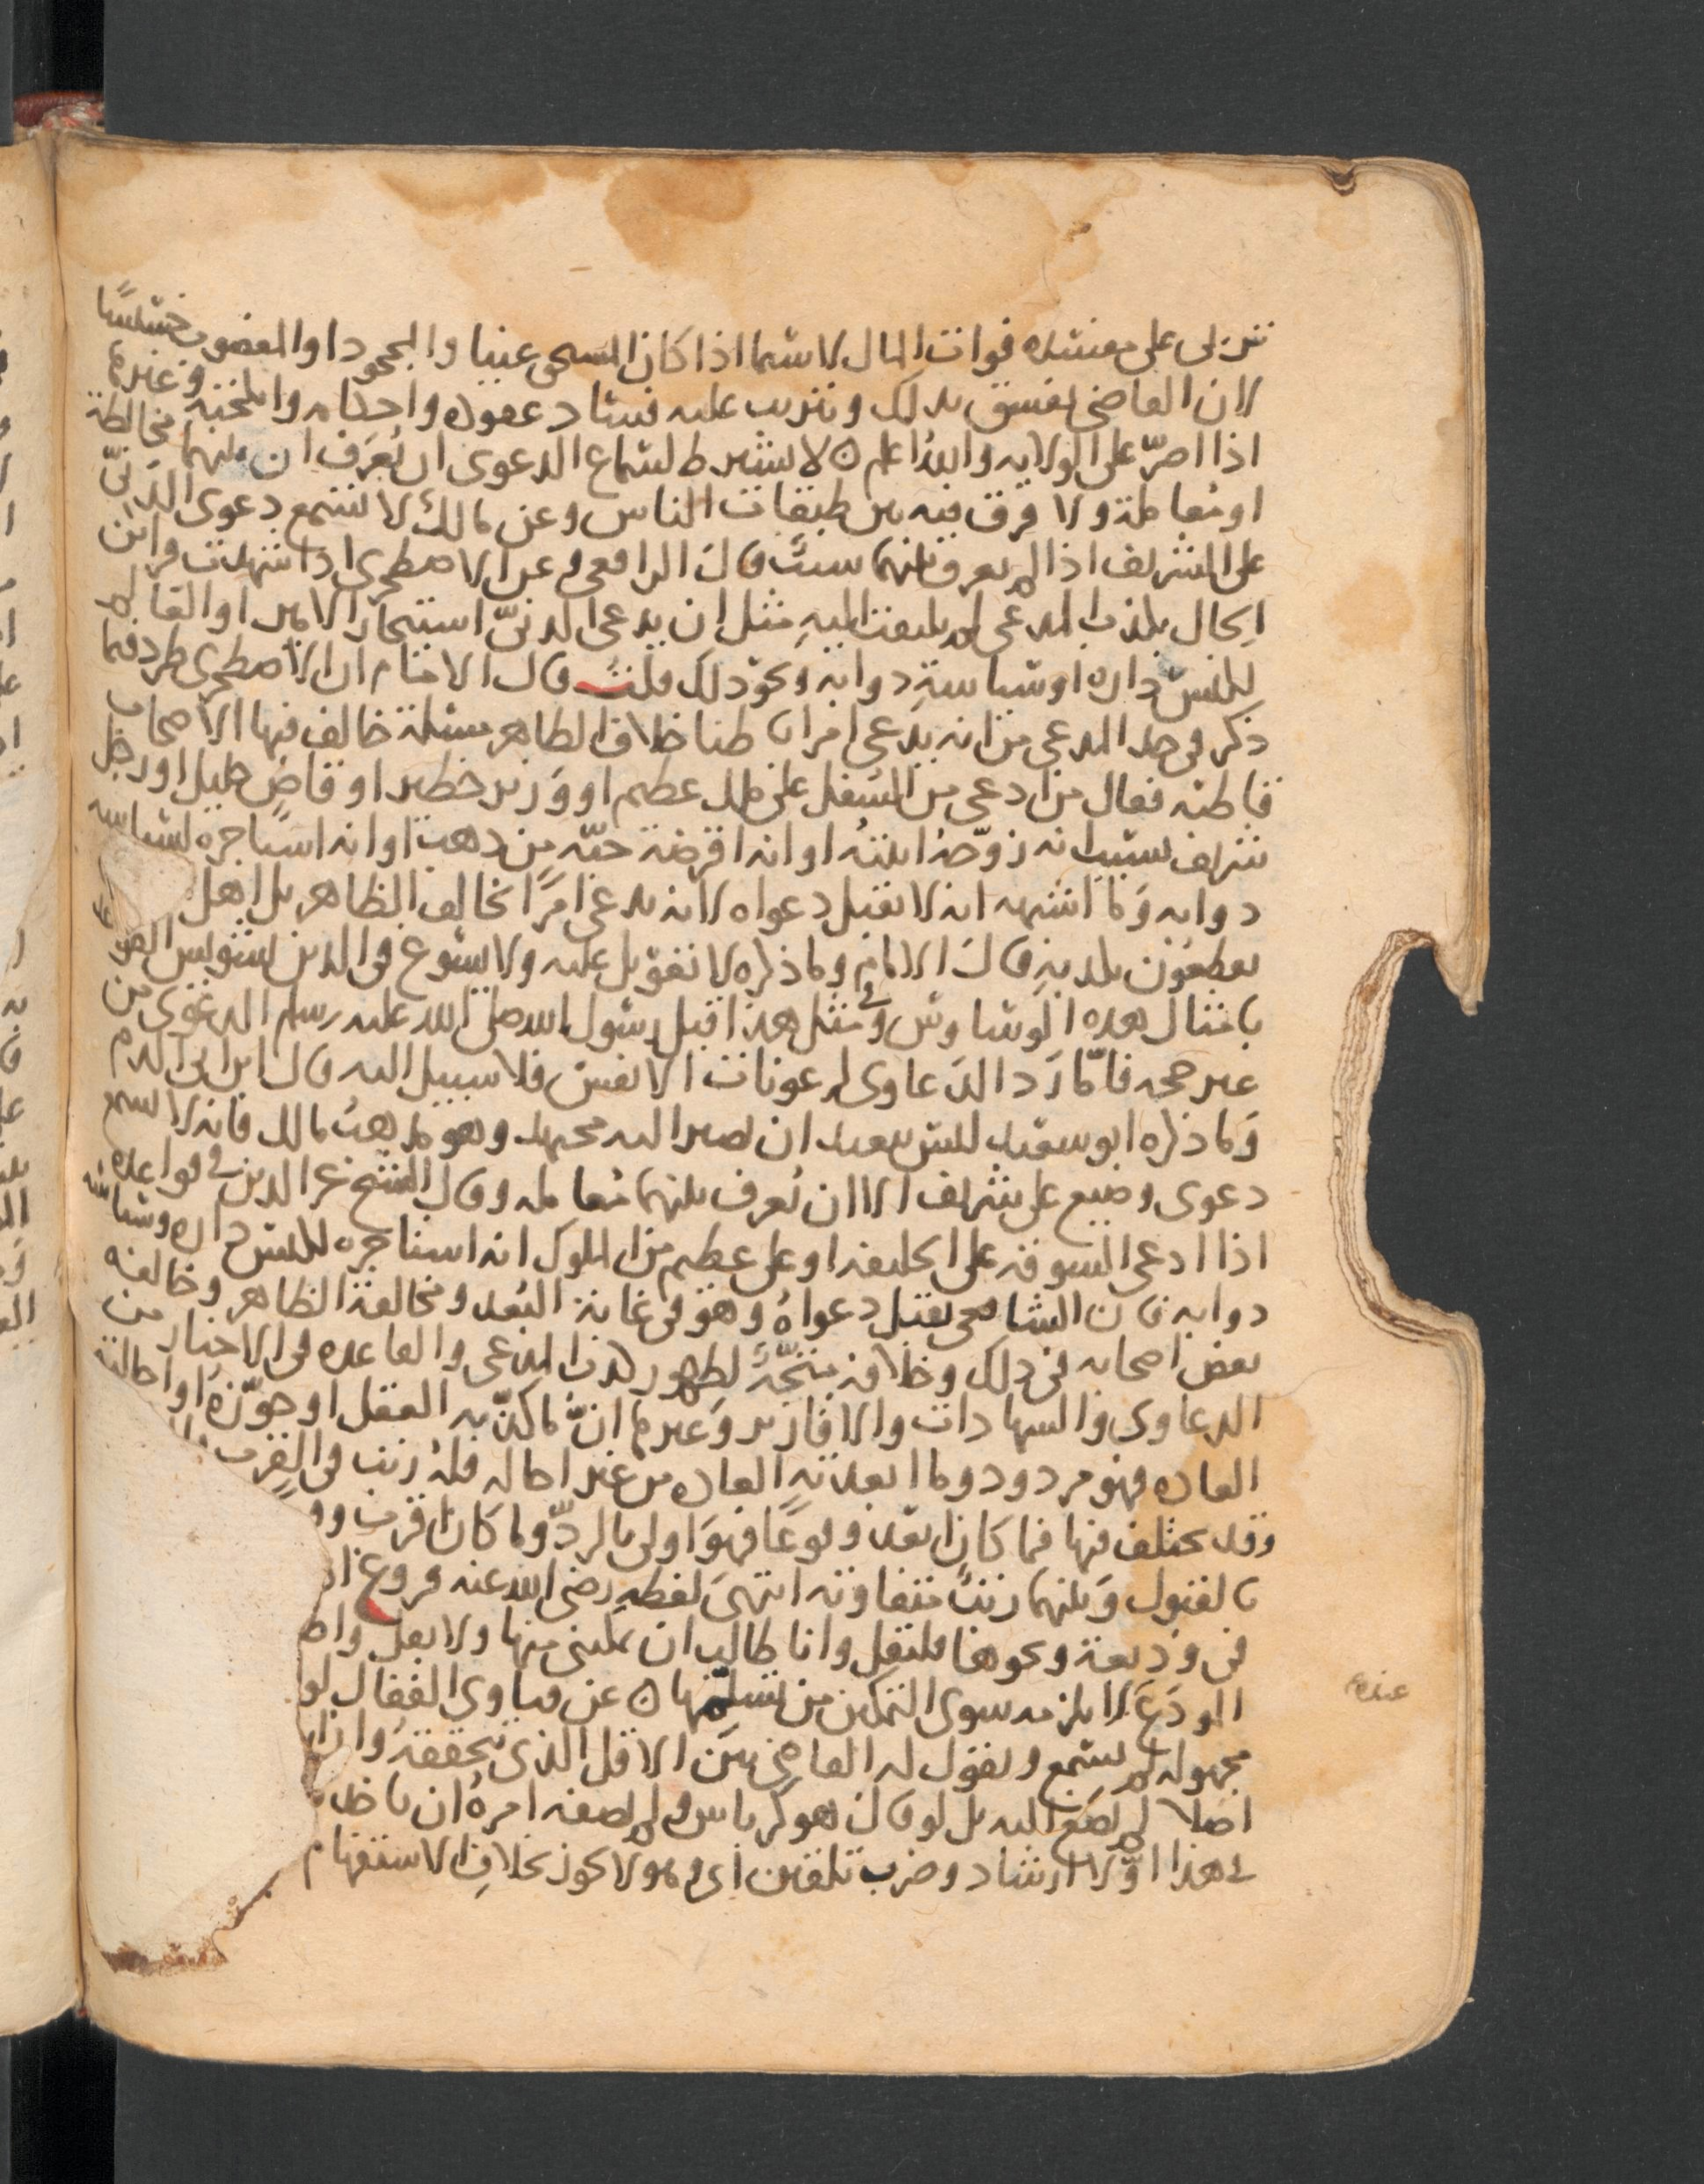 تربى على مفسده فوات المال لا سيما اذا كان المستحق غنيا والمجحود او المغصوب خسيسًا
لان القاضى يفسق بذلك ويترتب عليه فساد عقوده واحكامه وانكحته وغيرها
اذا اصرّ على الولايه والله اعلم ٥ لا يشترط لسماع الدعوى ان يُعرَف ان بينهما مخالطة
او معاملة ولا فرق فيه بين طبقات الناس وعن مالك لا تسمع دعوى الدنىّ
على الشريف اذا لم يعرف بينهما سبب قال الرافعى وعن الاصطخرى اذا شهدت قرائن
الحال بكذب المدعى لم يلتفت اليه مثل ان يدعى الدنىّ استيجار الامير او الفقيه
لكنس داره او سياسة دوابه ونحو ذلك قلت قال الامام ان الاصطخرى طرد فيما
ذكر فى حد المدعى من انه يدعى امرا باطنا خلاف الظاهر مسئلة خالف فيها الاصحاب
قاطبه فقال من ادعى من السفل على ملك عظيم او وزير خطير او قاضٍ جليل او رجل
شريف بسبب انه زوّجه ابنته او انه اقرضه حبّه من ذهب او انه استاجره لسياسه
دوابه وما اشبهه انه لا تقبل دعواه لانه يدعى امرًا يخالف الظاهر بل اهل
يقطعون بكذبه قال الامام وما ذكره لا تعويل عليه ولا يسوغ فى الدين تشويش القواعد
بامثال هذه الوساوس وفى مثل هذا قبل رسول الله صلى الله عليه وسلم الدعوى من
غير حجه فامّا رَد الدعاوى لرعونات الانفس فلا سبيل اليه قال ابن ابى الدم
وما ذكره ابو سعيد ليس ببعيد ان يصير اليه مجتهد وهو مذهب مالك فانه لا يسمع
دعوى وضيع على شريف الا ان يُعرف بينهما معامله وقال الشيخ عز الدين فى قواعده
اذا ادعى السوقه على الخليفه او على عظيم من الملوك انه استاجره لكنس داره وسياسه
دوابه فان الشافعى يقبل دعواهُ وهو فى غاية البُعد ومخالفة الظاهر وخالفه
بعض اصحابه فى ذلك وخلافه متجّه لظهور كذب المدعى والقاعده فى الاخبار من
الدعاوى والشهادات والاقارير وغيرها انّ ما كذّبه العقل او جوّزه او احالته
العاده فهو مردود وما ابعدته العاده من غير احاله فله رتب فى القرب
وقد يختلف فيها فما كان ابعد وقوعًا فهو اولى بالرد وما كان اقرب
بالقبول وبينهما رتبٌ متفاوته انتهى لفظه رضى الله عنه فروع
فى وديعة ونحوها فليقل وانا طالب ان يمكننى منها ولا يقل
المودَع لا يلزمه سوى التمكين من تسلّمها ٥ عن فتاوى القفال لو
مجهوله لم تسمع ويقول له القاضى بيّن الاقل الذى تتحققه
اصلا لم يصغ اليه بل لو قال هو كرباس ولم يصفه امره ان
هذا اوّلا ارشاد وضرب تلقين وهو لا يجوز بخلاف الاستفهام
عنده